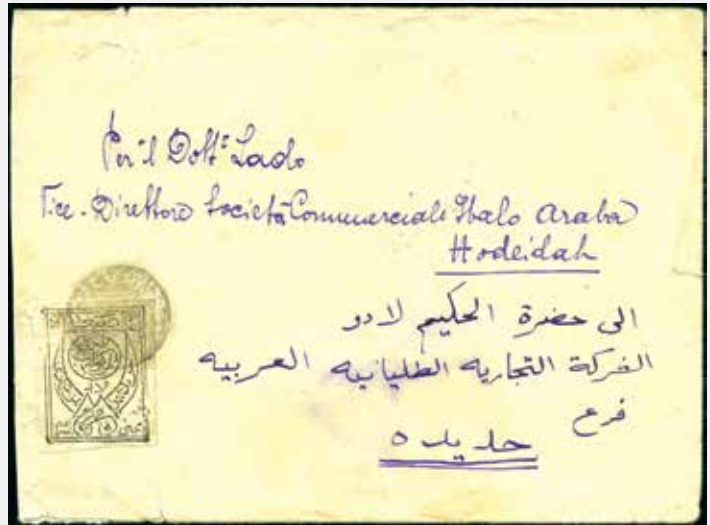 Per il Dott: Lado
Vice-Direttore Società Commerciale Italo Araba
Hodeidah
الى حضرة الحكيم لادو
الشركة التجاريه الطليانيه العربيه
فرع
حديده